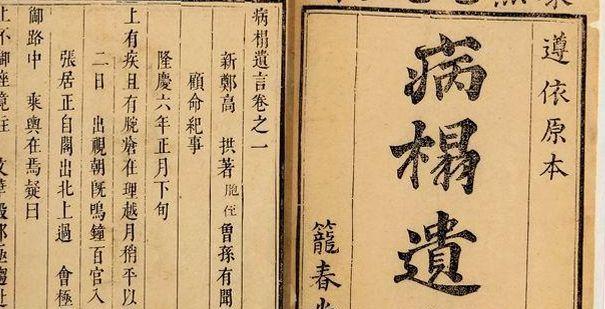 遵依原本
病榻遺
籠春
病榻遺言卷之一
新鄭高 拱著 胞侄 曾孫有聞
顧命紀事
隆慶六年正月下旬
上有疾且有腕瘡在理越月稍平以
二日 出視朝既鳴鐘百官入
張居正自閣出北上過 會極
御路中 乘輿在焉疑曰
上不御座竟往 文華殿邪亟趨